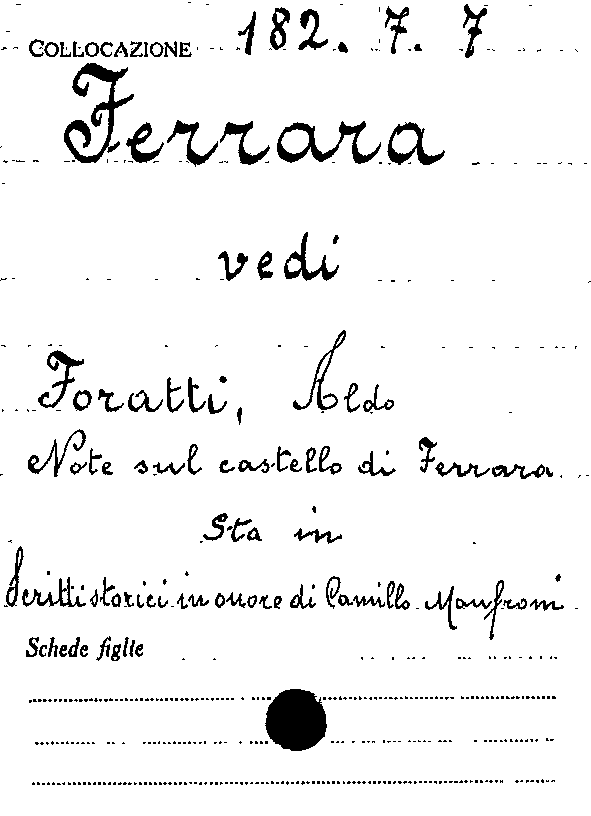 COLLOCAZIONE 182. 7. 7
Ferrara
vedi
Foratti, Aldo
Note sul castello di Ferrara
Sta in
Scritti storici in onore di Camillo Manfroni
Schede figlie